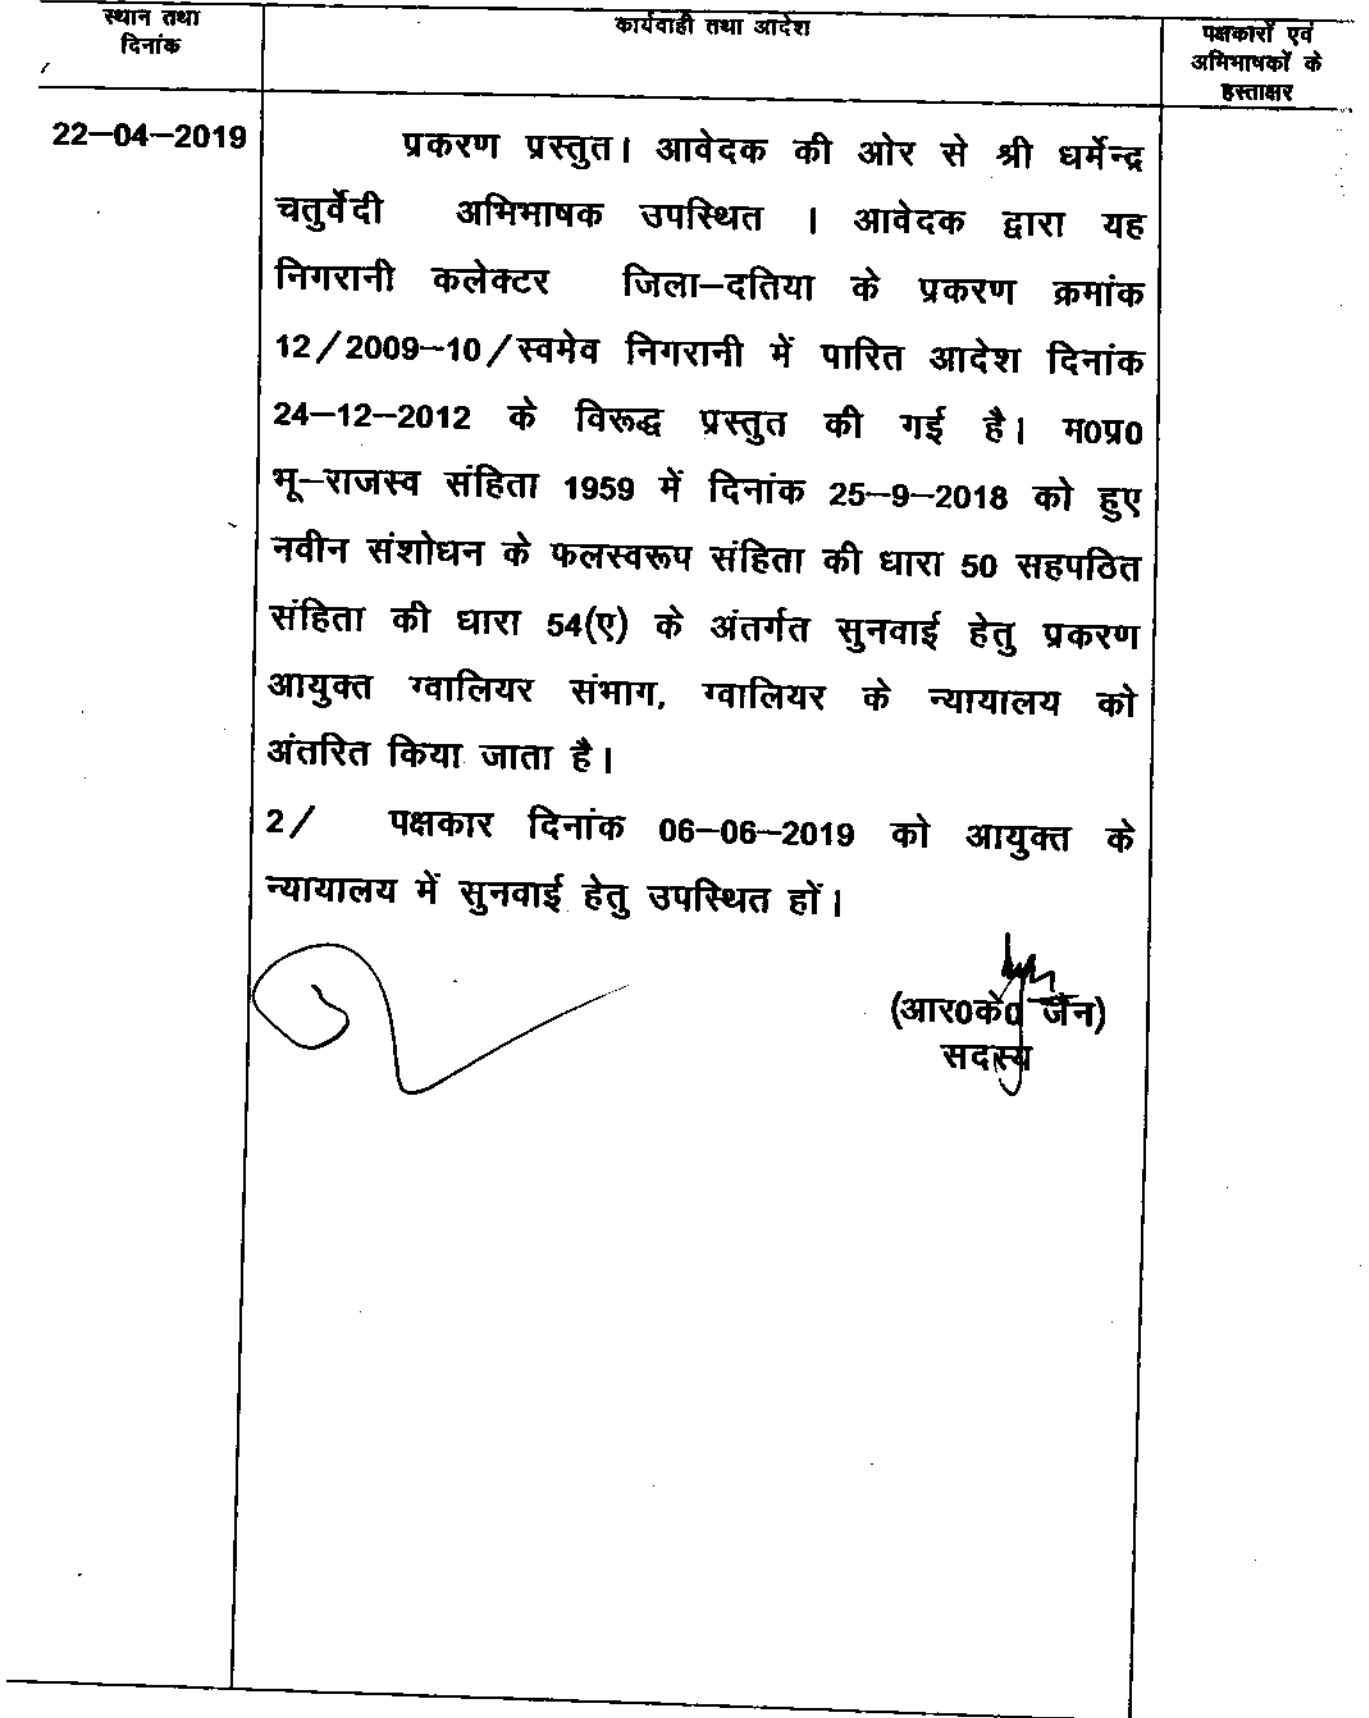 स्थान तथा
दिनांक
कार्यवाही तथा आदेश
पक्षकारों एवं
अभिभाषकों के
हस्ताक्षर
22–04–2019
प्रकरण प्रस्तुत। आवेदक की ओर से श्री धर्मेन्द्र
चतुर्वेदी अभिभाषक उपस्थित । आवेदक द्वारा यह
निगरानी कलेक्टर जिला–दतिया के प्रकरण क्रमांक
12/2009–10/स्वमेव निगरानी में पारित आदेश दिनांक
24–12–2012 के विरूद्ध प्रस्तुत की गई है। म0प्र0
भू–राजस्व संहिता 1959 में दिनांक 25–9–2018 को हुए
नवीन संशोधन के फलस्वरूप संहिता की धारा 50 सहपठित
संहिता की धारा 54(ए) के अंतर्गत सुनवाई हेतु प्रकरण
आयुक्त ग्वालियर संभाग, ग्वालियर के न्यायालय को
अंतरित किया जाता है।
2/ पक्षकार दिनांक 06–06–2019 को आयुक्त के
न्यायालय में सुनवाई हेतु उपस्थित हों।
(आर0के0 जैन)
सदस्य